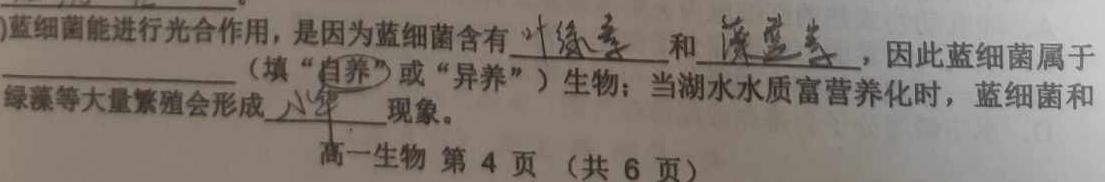 )蓝细菌能进行光合作用，是因为蓝细菌含有叶绿素和藻蓝素，因此蓝细菌属于
（填“自养”或“异养”）生物；当湖水水质富营养化时，蓝细菌和
绿藻等大量繁殖会形成水华现象。
高一生物 第 4 页 （共 6 页）